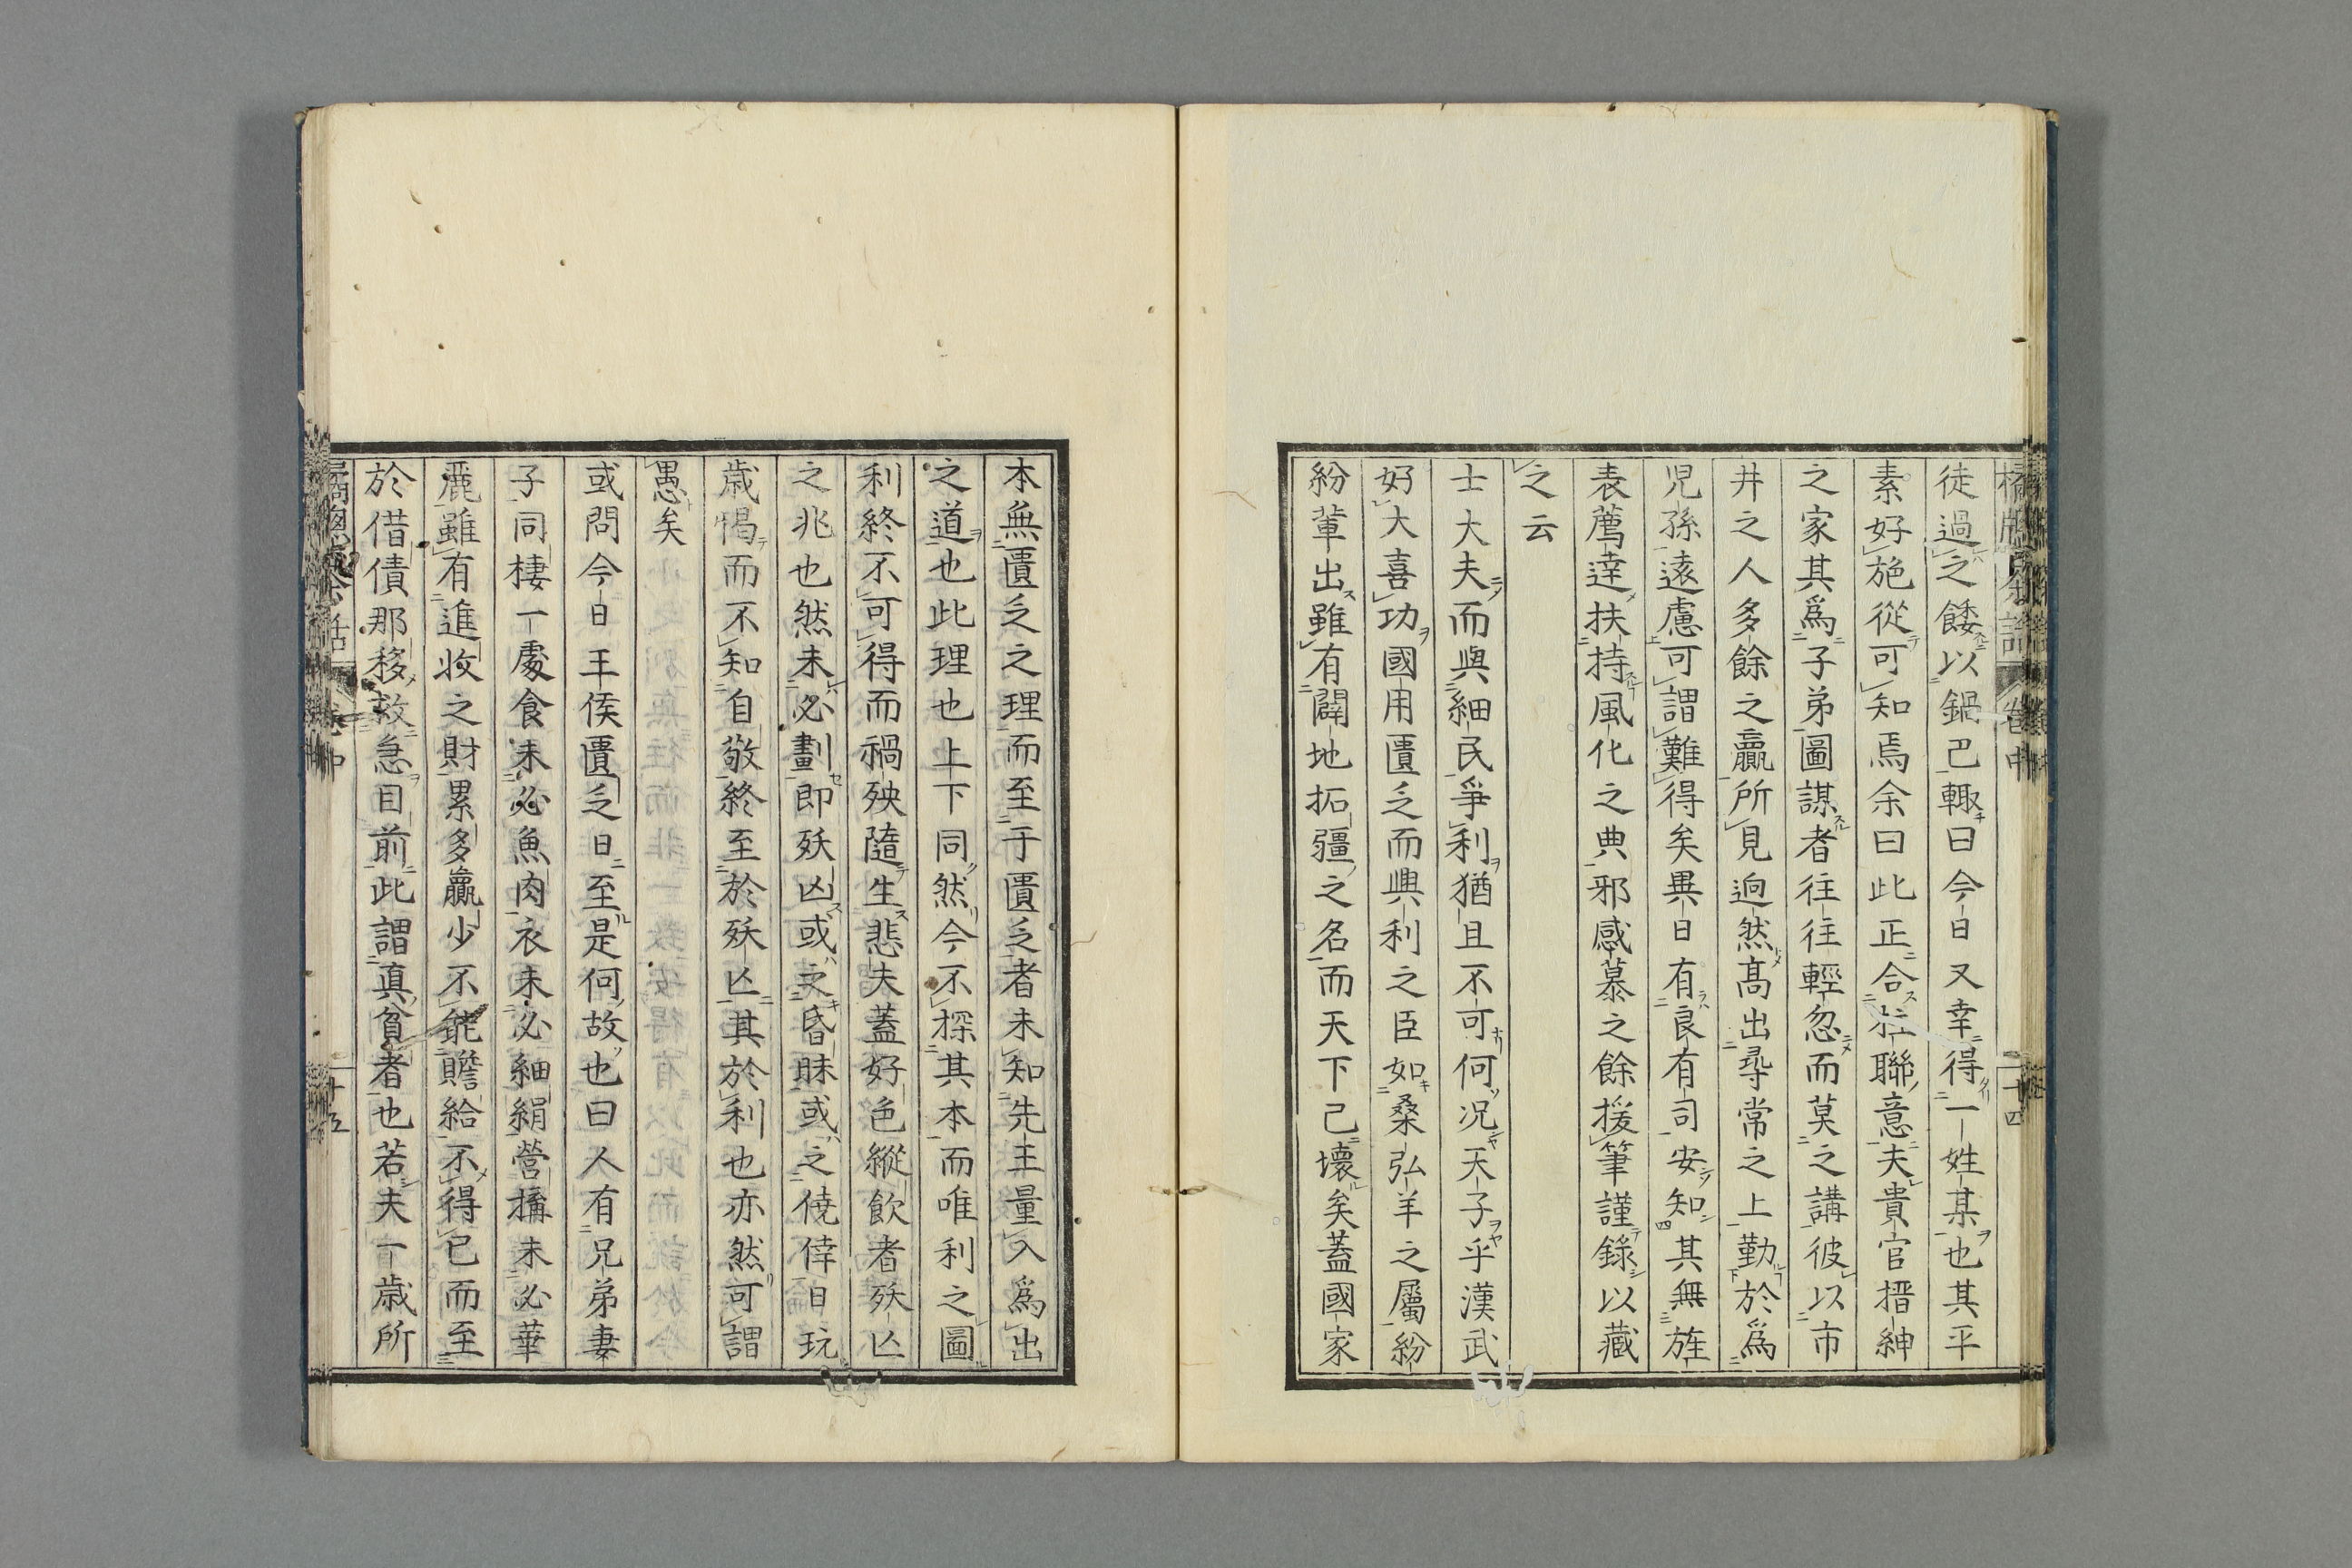 徒過之餧以鍋已輙曰今日又幸得一姓某也其平
素好施從可知焉余曰此正合聯意夫貴官搢紳
之家其爲子弟圖謀者往往輕忽而莫之講彼以市
井之人多餘之贏所見逈然髙出尋常之上勤於爲
児孫遠慮可謂難得矣異日有良有司安知其無旌
表薦達扶持風化之典邪感慕之餘援筆謹錄以藏
之云
士大夫而與細民爭利猶且不可何况天子乎漢武
好大喜功國用匱乏而興利之臣如桑弘羊之屬紛
紛輩出雖有闢地拓疆之名而天下已壞矣蓋國家
二十四
本無匱乏之理而至于匱乏者未知先王量入爲出
之道也此理也上下同然今不探其本而唯利之圖
利終不可得而禍殃隨生悲夫蓋好色縱飲者殀亾
之兆也然未必劃即殀凶或之昏昧或之僥倖日玩
歳愒而不知自敬終至於殀亾其於利也亦然可謂
愚矣
或問今日王侯匱乏日至是何故也曰人有兄弟妻
子同棲一處食未必魚肉衣未必細絹營搆未必華
麗雖有進收之財累多贏少不能贍給不得已而至
於借債那移救急目前此謂真貧者也若夫一歳所